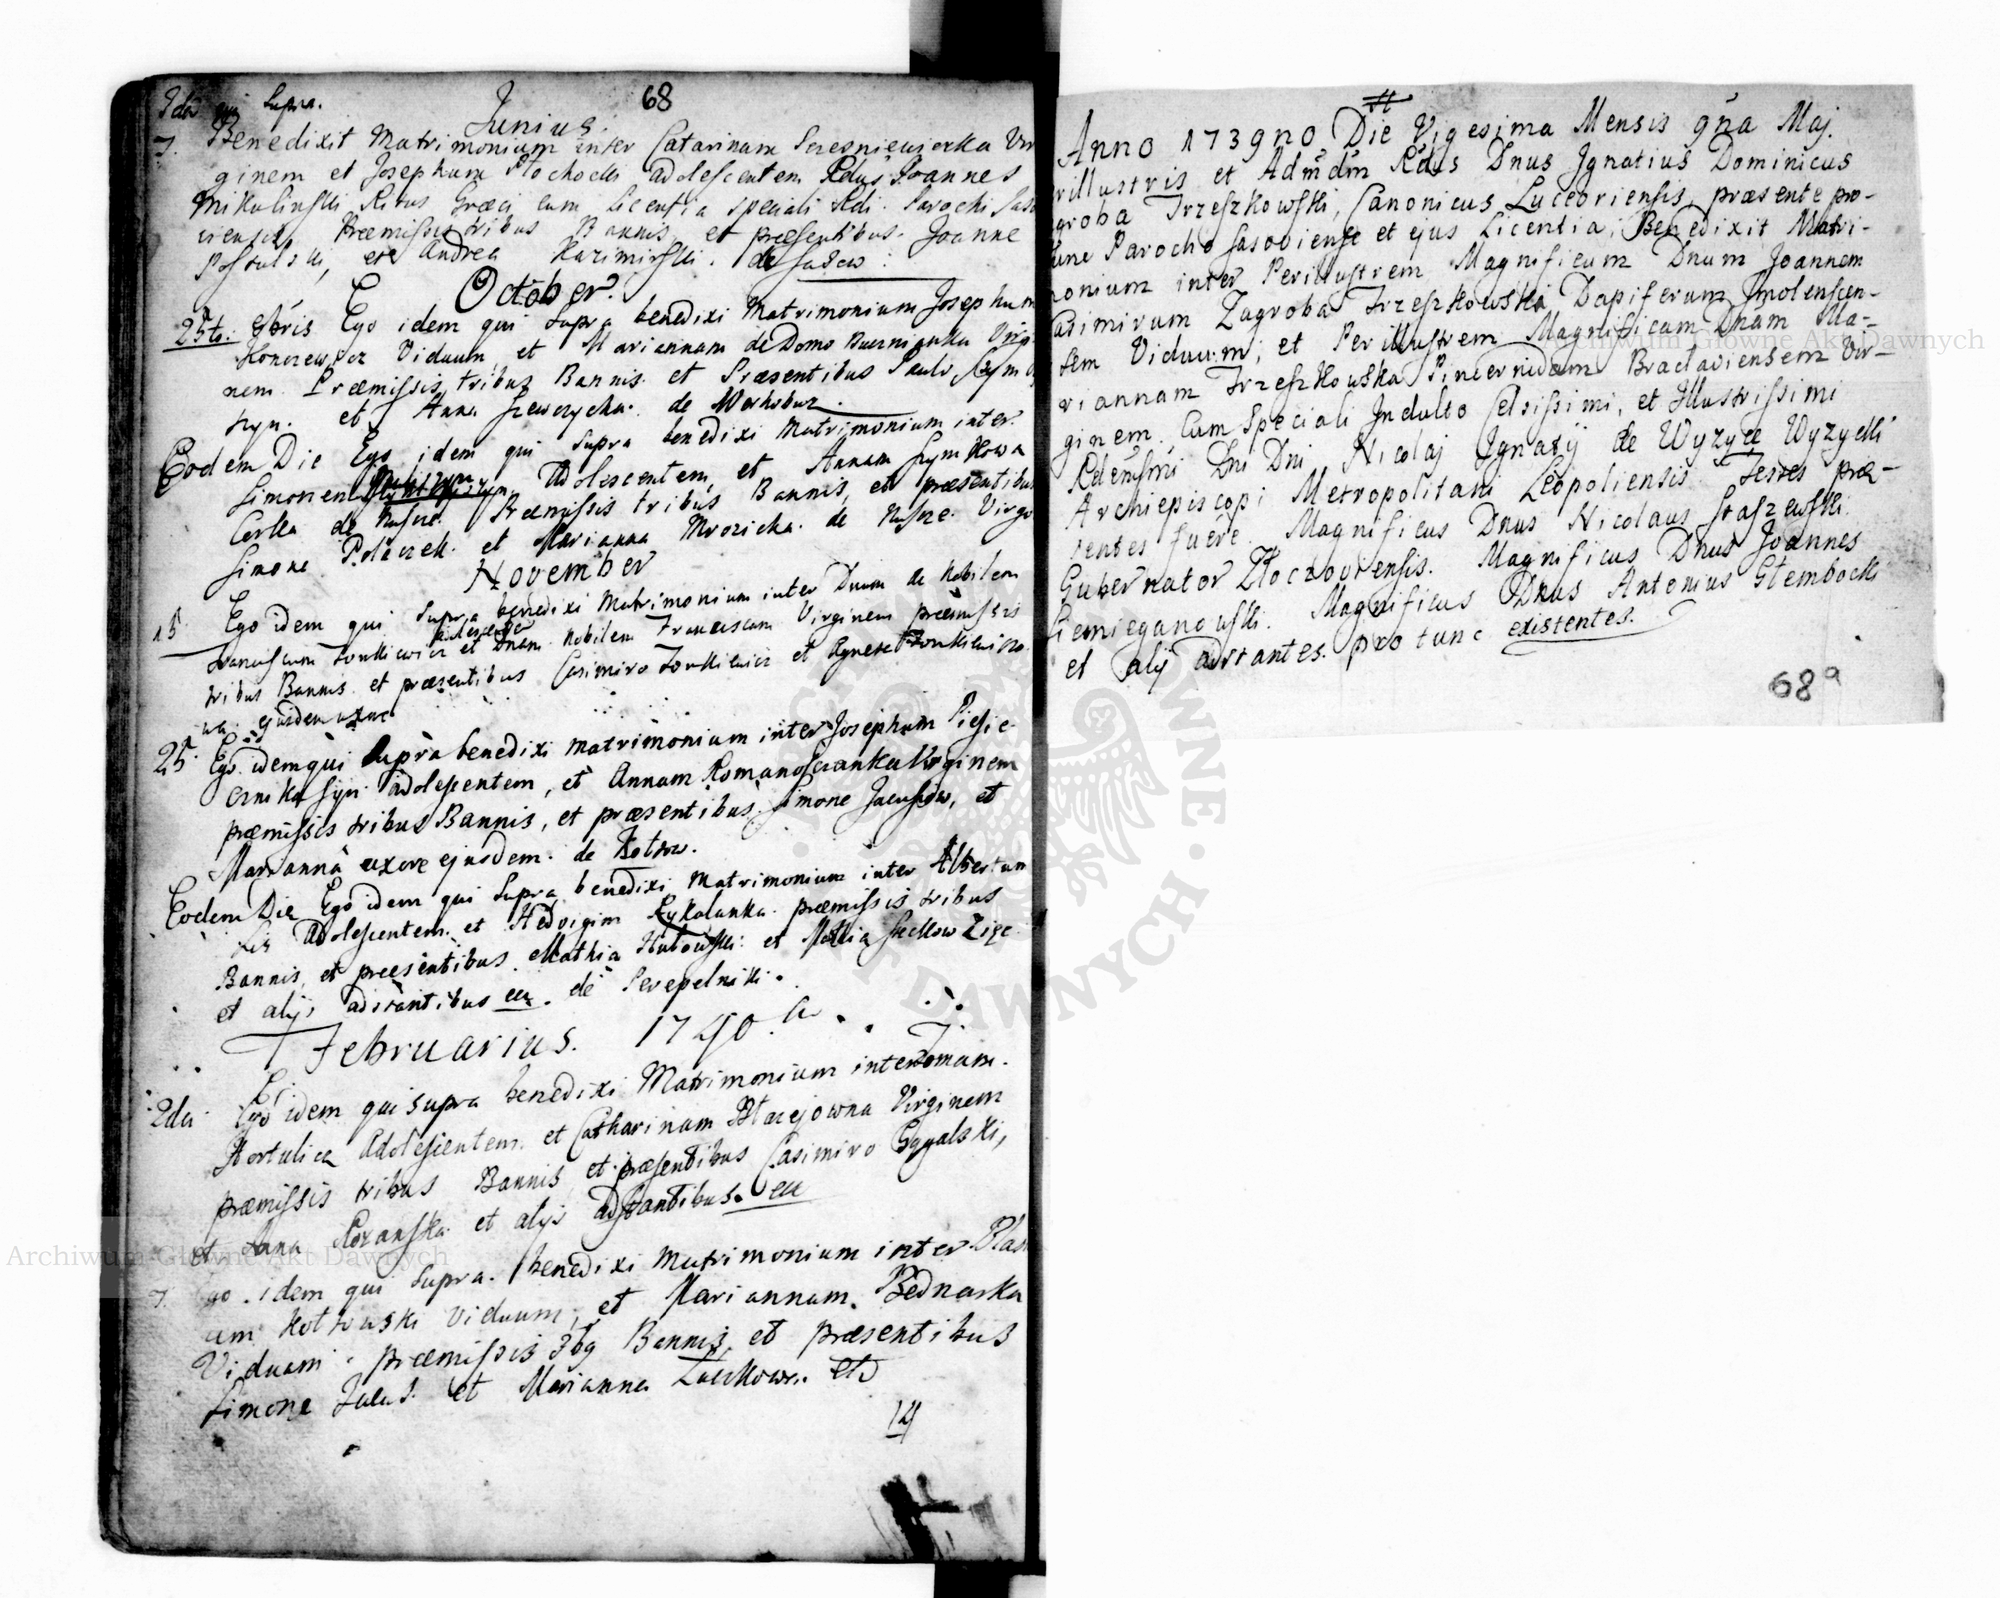 68
Idem qui Supra.
Junius.
7. Benedixit Matrimonium inter Catarinam Vir
ginem et Josephum Płochocki adolescentem Rdus Joannes
Mikulinski Ritus Græci cum Licentia speciali Rdi Parochi Saso
viensis, Præmissis tribus Bannis et præsentibus Joanne
et Andrea Kazimirski. de Sasow:
October.
25ta. 8bris Ego idem qui Supra benedixi Matrimonium Josephum
Viduum, et Mariannam de Domo Virgi
nem Præmissis tribus Bannis et Præsentibus Paulo Szym
szyn. et Anna Szewczycha. de Werhobuz.
Eodem Die Ego idem qui Supra benedixi Matrimonium inter
Simonem Adolescentem, et Annam Szymkowa
Corka de Præmissis tribus Bannis, et præsentibus
Simone Polaczek. et Marianna Mrozicka. de Virgo
November
15 Ego idem qui Supra benedixi Matrimonium inter Dnum de Nobilem
Franciscum Jonkiewicz et Dnam Nobilem Franciscam Virginem præmissis
tribus Bannis et præsentibus Casimiro Jonkiewicz et Agnete Jonkiewiczo
wa ejusdem uxore
25. Ego idem qui Supra benedixi matrimonium inter Josephum Piesie
cznika Syn adolescentem, et Annam Virginem
præmissis tribus Bannis, et præsentibus Simone et
Marianna uxore ejusdem. de Kotow.
Eodem Die Ego idem qui Supra benedixi Matrimonium inter Albertum
Lis Adolescentem. et Hedvigim Rykalanka præmissis tribus
Bannis, et præsentibus. Mathia Hutowski et
et alijs adstantibus etc. de Perepelniki.
Februarius. 1740.
2da Ego idem qui supra benedixi Matrimonium inter Tomam.
Hortulica Adolescentem. et Catharinam Błazejowna Virginem
præmissis tribus Bannis et præsentibus Casimiro
et Anna et alijs adstantibus. etc
7. Ego idem qui Supra. benedixi Matrimonium inter Blasi
um Kottowski Viduum, et Mariannam. Bednarka
Viduam. præmissis 3bg Bannis, et præsentibus
Simone et Marianna etc
14
#
Anno 1739no Die Vigesima Mensis 9na Maj.
rillustris et Admdm Rdus Dnus Jgnatius Dominicus
groba Trzeszkowski, Canonicus Luceoriensis, præsente pro-
Parocho Sasoviense et ejus Licentia, Benedixit Matri-
monium inter Perillustrem Magnificum Dnum Joannem
Casimirum Zagroba Trzeszkowski Dapiferum Smolenscen-
sem Viduum; et Perillustrem Magnificam Dnam Ma-
riannam Trzeszkowska Pincernidam Braclaviensem Vir-
ginem. Cum Speciali Jndulto Celsissimi, et Illustrissimi
Rdmsmi Dni Dni Nicolaj Jgnatij de Wyzyce Wyzycki
Archiepiscopi Metropolitani Leopoliensis. Testes præ-
sentes fuere. Magnificus Dnus Nicolaus Staszewski
Gubernator Złoczoviensis. Magnificus Dnus Joannes
Siemieganowski. Magnificus Dnus Antonius Stembocki
et alij adstantes. pro tunc existentes.
68a
Archiwum Główne Akt Dawnych
Archiwum Główne Akt Dawnych